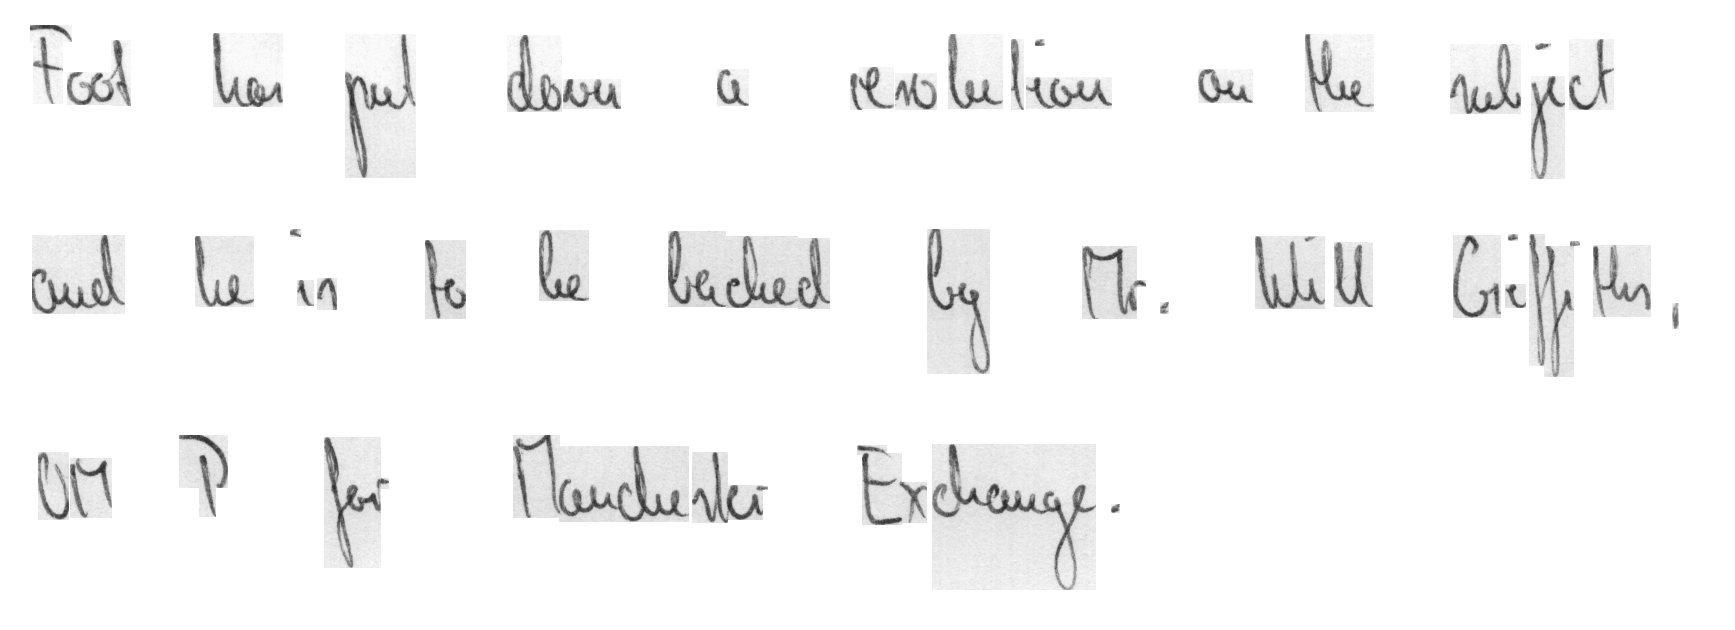 Foot has put down a resolution on the subject
and he is to be backed by Mr. Will Griffiths,
OM P for Manchester Exchange.